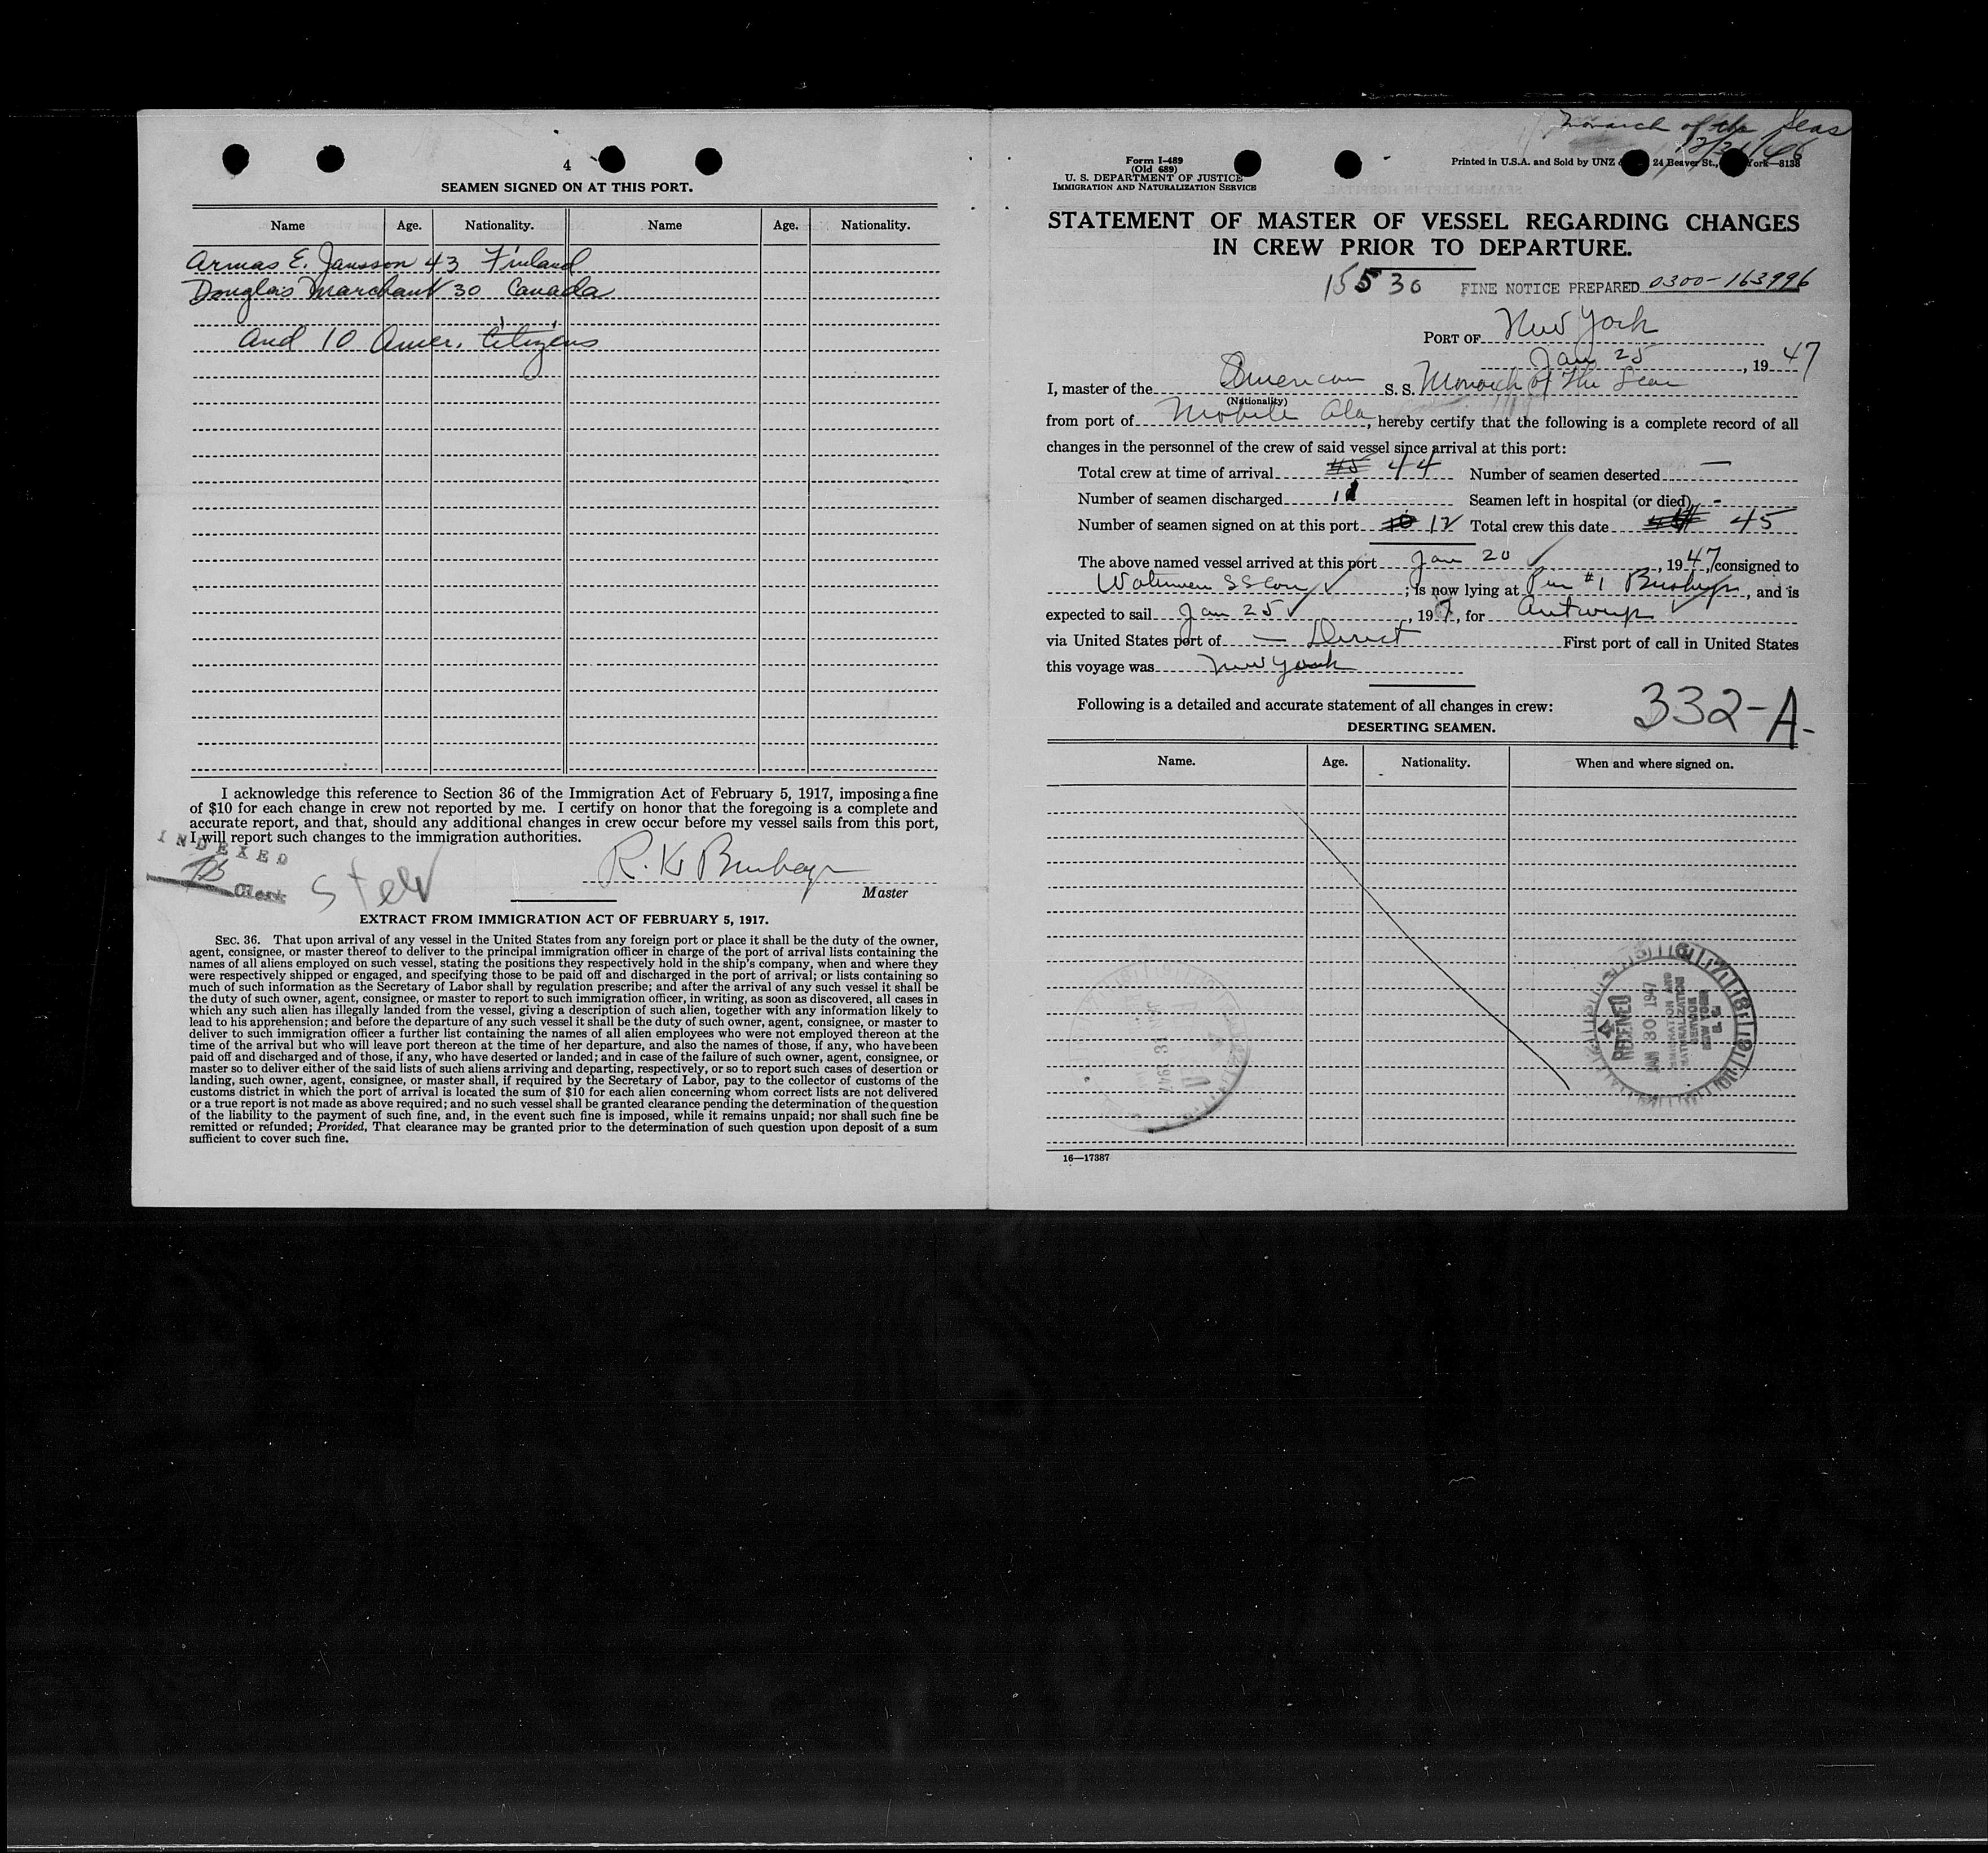 4
SEAMEN SIGNED ON AT THIS PORT.
Name Age. Nationality. Name Age. Nationality.
Armas E. Jansson 43 Finland
Douglas Marchant 30 Canada
and 10 Amer. Citizens
I acknowledge this reference to Section 36 of the Immigration Act of February 5, 1917, imposing a fine
of $10 for each change in crew not reported by me. I certify on honor that the foregoing is a complete and
accurate report, and that, should any additional changes in crew occur before my vessel sails from this port,
I will report such changes to the immigration authorities.
INDEXED
Clerk
R. K.
Master
EXTRACT FROM IMMIGRATION ACT OF FEBRUARY 5, 1917.
SEC. 36. That upon arrival of any vessel in the United States from any foreign port or place it shall be the duty of the owner,
agent, consignee, or master thereof to deliver to the principal immigration officer in charge of the port of arrival lists containing the
names of all aliens employed on such vessel, stating the positions they respectively hold in the ship's company, when and where they
were respectively shipped or engaged, and specifying those to be paid off and discharged in the port of arrival; or lists containing so
much of such information as the Secretary of Labor shall by regulation prescribe; and after the arrival of any such vessel it shall be
the duty of such owner, agent, consignee, or master to report to such immigration officer, in writing, as soon as discovered, all cases in
which any such alien has illegally landed from the vessel, giving a description of such alien, together with any information likely to
lead to his apprehension; and before the departure of any such vessel it shall be the duty of such owner, agent, consignee, or master to
deliver to such immigration officer a further list containing the names of all alien employees who were not employed thereon at the
time of the arrival but who will leave port thereon at the time of her departure, and also the names of those, if any, who have been
paid off and discharged and of those, if any, who have deserted or landed; and in case of the failure of such owner, agent, consignee, or
master so to deliver either of the said lists of such aliens arriving and departing, respectively, or so to report such cases of desertion or
landing, such owner, agent, consignee, or master shall, if required by the Secretary of Labor, pay to the collector of customs of the
customs district in which the port of arrival is located the sum of $10 for each alien concerning whom correct lists are not delivered
or a true report is not made as above required; and no such vessel shall be granted clearance pending the determination of the question
of the liability to the payment of such fine, and, in the event such fine is imposed, while it remains unpaid; nor shall such fine be
remitted or refunded; Provided, That clearance may be granted prior to the determination of such question upon deposit of a sum
sufficient to cover such fine.
Monarch of the Seas
12/31/46
Form I-489
(Old 689)
U. S. DEPARTMENT OF JUSTICE
IMMIGRATION AND NATURALIZATION SERVICE
Printed in U.S.A. and Sold by UNZ 24 Beaver St., York—8138
STATEMENT OF MASTER OF VESSEL REGARDING CHANGES
IN CREW PRIOR TO DEPARTURE.
15530 FINE NOTICE PREPARED 0300-163996
PORT OF New York
Jan 25, 1947
I, master of the American S. S. Monarch of The Seas
(Nationality)
from port of Mobile Ala, hereby certify that the following is a complete record of all
changes in the personnel of the crew of said vessel since arrival at this port:
Total crew at time of arrival 45 44 Number of seamen deserted —
Number of seamen discharged 11 Seamen left in hospital (or died) -
Number of seamen signed on at this port 10 12 Total crew this date 45
The above named vessel arrived at this port Jan 20, 1947, consigned to
Waterman SS Corp; is now lying at Pier #1 , and is
expected to sail Jan 25, 197, for Antwerp
via United States port of — Direct First port of call in United States
this voyage was New York
Following is a detailed and accurate statement of all changes in crew:
332-A-
DESERTING SEAMEN.
Name. Age. Nationality. When and where signed on.
RECEIVED
JAN 30 1947
IMMIGRATION AND
NATURALIZATION
SERVICE
NEW YORK
16—17387